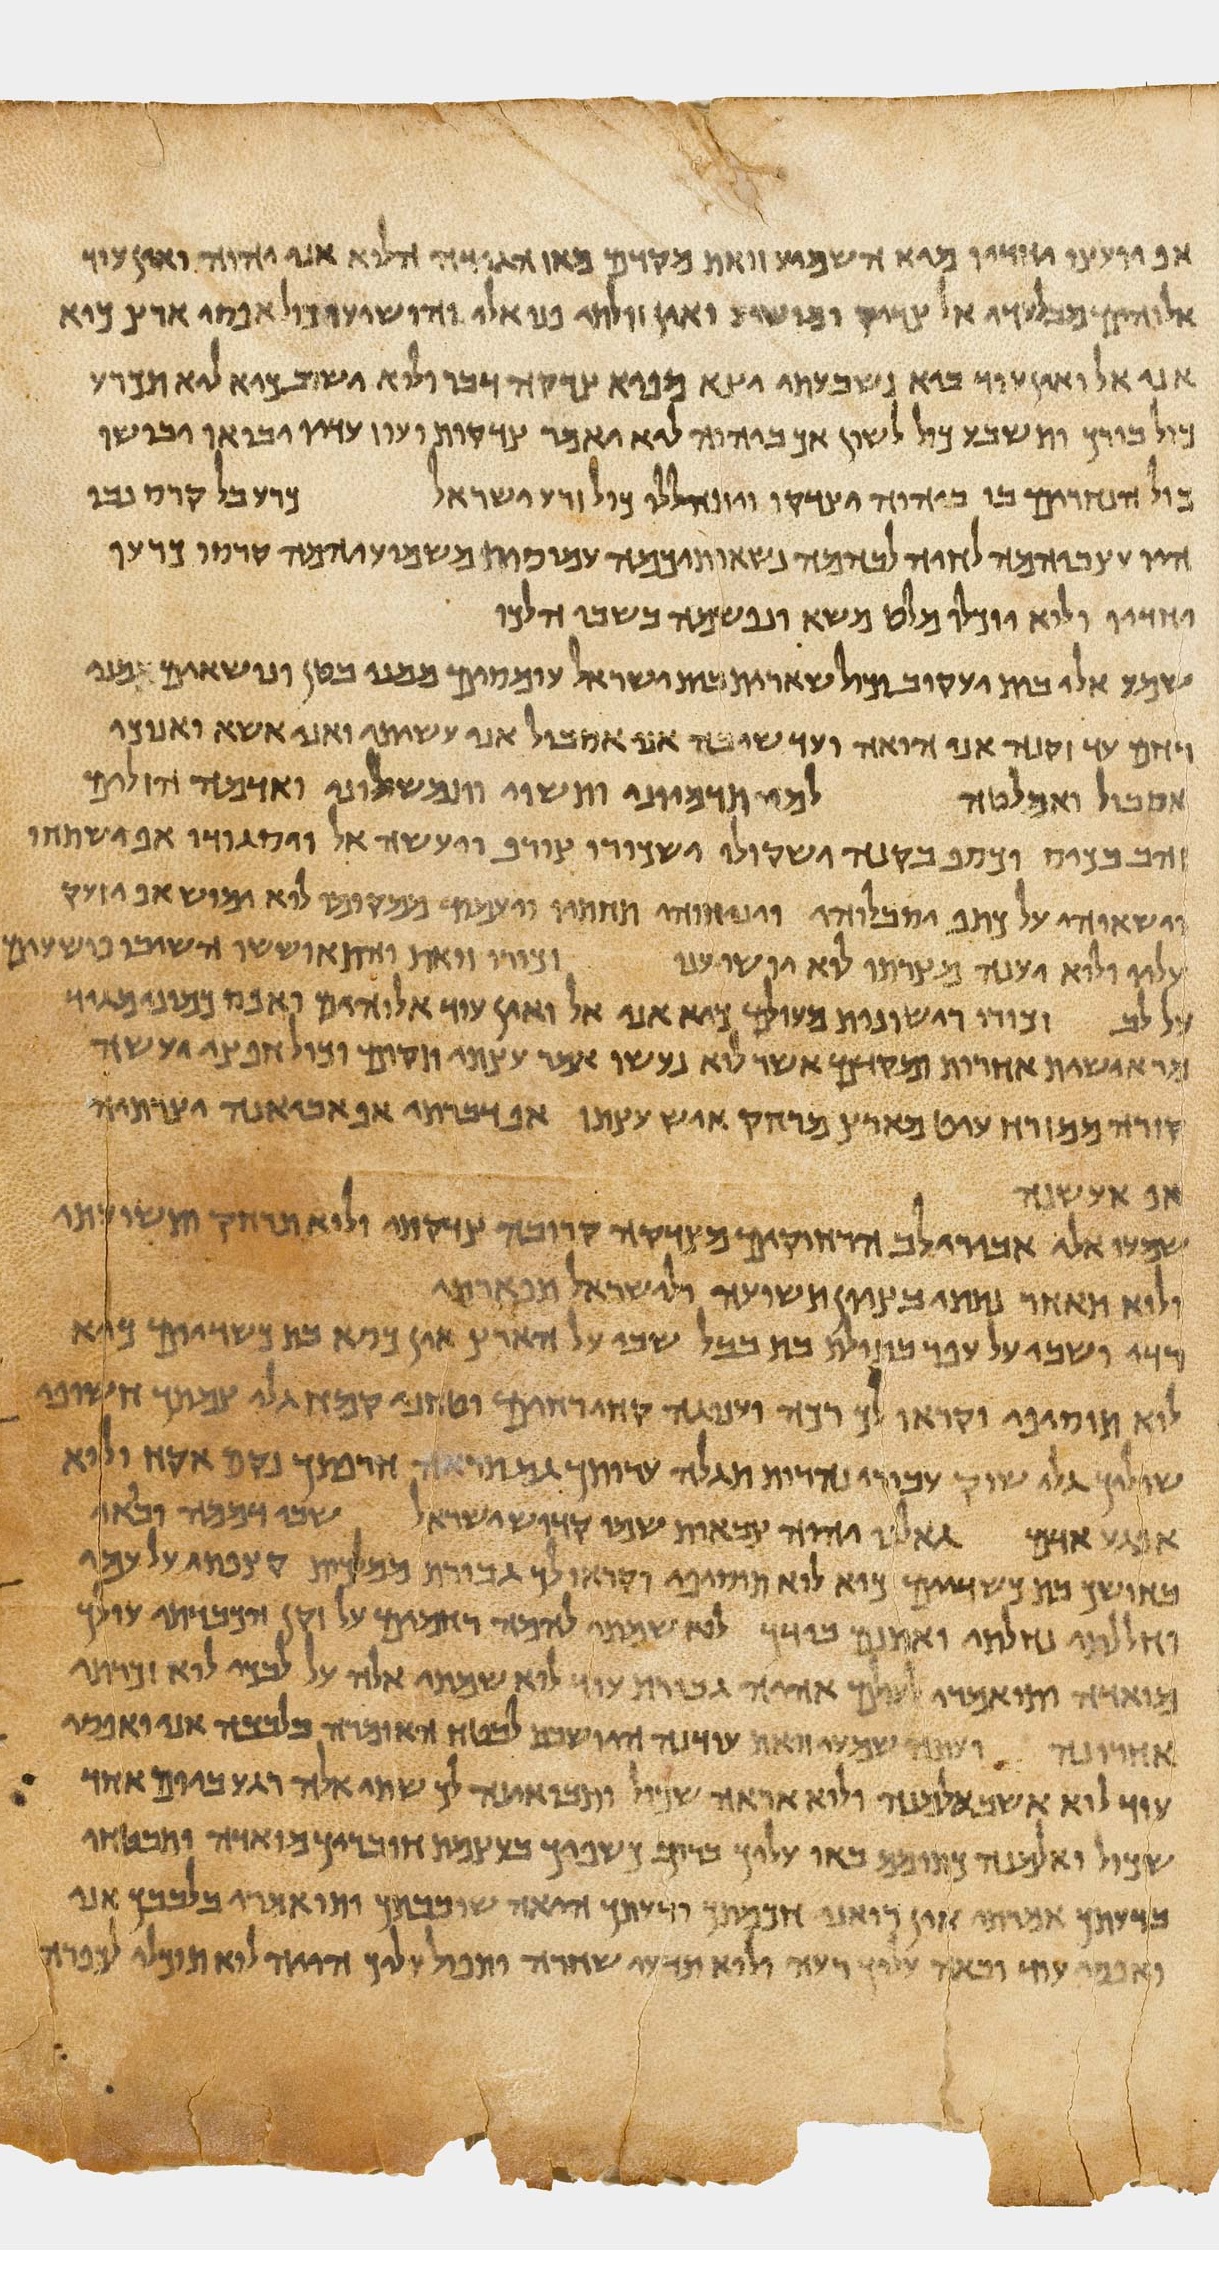 אף יועצו יחדיו מיא השמיע זואת מקדם מאז הגידה הלוא אני יהוה ואין עוד
אלוהים מבלעדי אל צדיק ומושיע ואין זולתי פנו אלי והושיעו כול אפסי ארץ כיא
אני אל ואין עוד ביא נשבעתי יצא מפיא צדקה דבר ולוא ישוב כיא ליא תכרע
כול בורך ותשבע כול לשון אך ביהוה ליא יאמר צדקות ועוז עדיו יבואו ויבושו
כול הנחרים בו ביהוה יצדקו ויתהללו כול זרע ישראל כרע בל קרס נבו
היו עצביהמה לחיה לבהמה נשאותיכמה עמוסות משמיעיהמה קרסו כרעו
יחדיו ולוא יוכלו מלט משא ונפשמה בשבי הלכו
שמעו אלי בית יעקוב וכול שארית בית ישראל עומסים ממני בטן ונשאים מני
רחם עד זקנה אני הואה ועד שיבה אני אסבול אני עשיתי ואני אשא ואנוכי
אסבול ואמלטה למי תדמיוני ותשוו ותמשלוני ואדמה הזולים
זהב מכיס וכסף בקנה ישקולו ישכורו צורף ויעשה אל ויסגודו אף ישתחוו
וישאוהו על כתף יסבלוהו ויניחוהו תחתיו ויעמד ממקומו לוא ימוש אף יזעק
עליו ולוא יענה מצרתו לוא יושיענו זכורו זואת והתאוששו השיבו פושעים
על לב זכורו רישונות מעולם כיא אני אל ואין עוד אלוהים ואפס כמוני מגיד
מראישית אחרית ומקדם אשר לוא נעשו אומר עצתי תקום וכול חפצי יעשה
קורה ממזרח עיט מארץ מרחק איש עצתו אף דברתי אף אביאנה יצרתיה
אף אעשנה
שמעו אלי אבירי לב הרחוקים מצדקה קרובה צדקתי ולוא תרחק ותשועתי
ולוא תאחר נתתי בציון תשועה ולישראל תפארתי
רדי ושבי על עפר בתולת בת בבל שבי על הארץ אין כסא בת כשדיים כיא
לוא תוסיפי וקראו לך רכה וענוגה קחי רחים וטחני קמח גלי צמתך חשופי
שוליך גלי שוק עבורי נהרות תגלה ערותך גם תראה חרפתך נקם אקח ולוא
אפגע אדם גואלנו יהוה צבאות שמו קדוש ישראל שבי דממה ובאי
בחושך בת כשדיים כיא לוא תוסיפי וקראו לך גבורת ממלכות קצפתי על עמי
וחללתי נחלתי ואתנם בידך לוא שמתי להמה רחמים על זקן הכבדתי עולך
מואדה ותואמרי לעולם אהיה גברת עוד לוא שמתי אלה על לבכי לוא זכרתי
אחרונה ועתה שמעי זואת עדינה היושבת לבטח האומרה בלבבה אני ואפסי
עוד לוא אשב אלמנה ולוא אראה שכול ותבואינה לך שתי אלה רגע ביום אחד
שכול ואלמנה כתומם באו עליך ברוב כשפיך בעצמת חובריך מואדה ותבטחי
בדעתך אמרתי אין רואני חכמתך ודעתך היאה שובבתך ותואמרי בלבבך אני
ואפסי עוד ובאה עליך רעה ולוא תדעי שחרה ותפול עליך הווה לוא תוכלי לכפרה